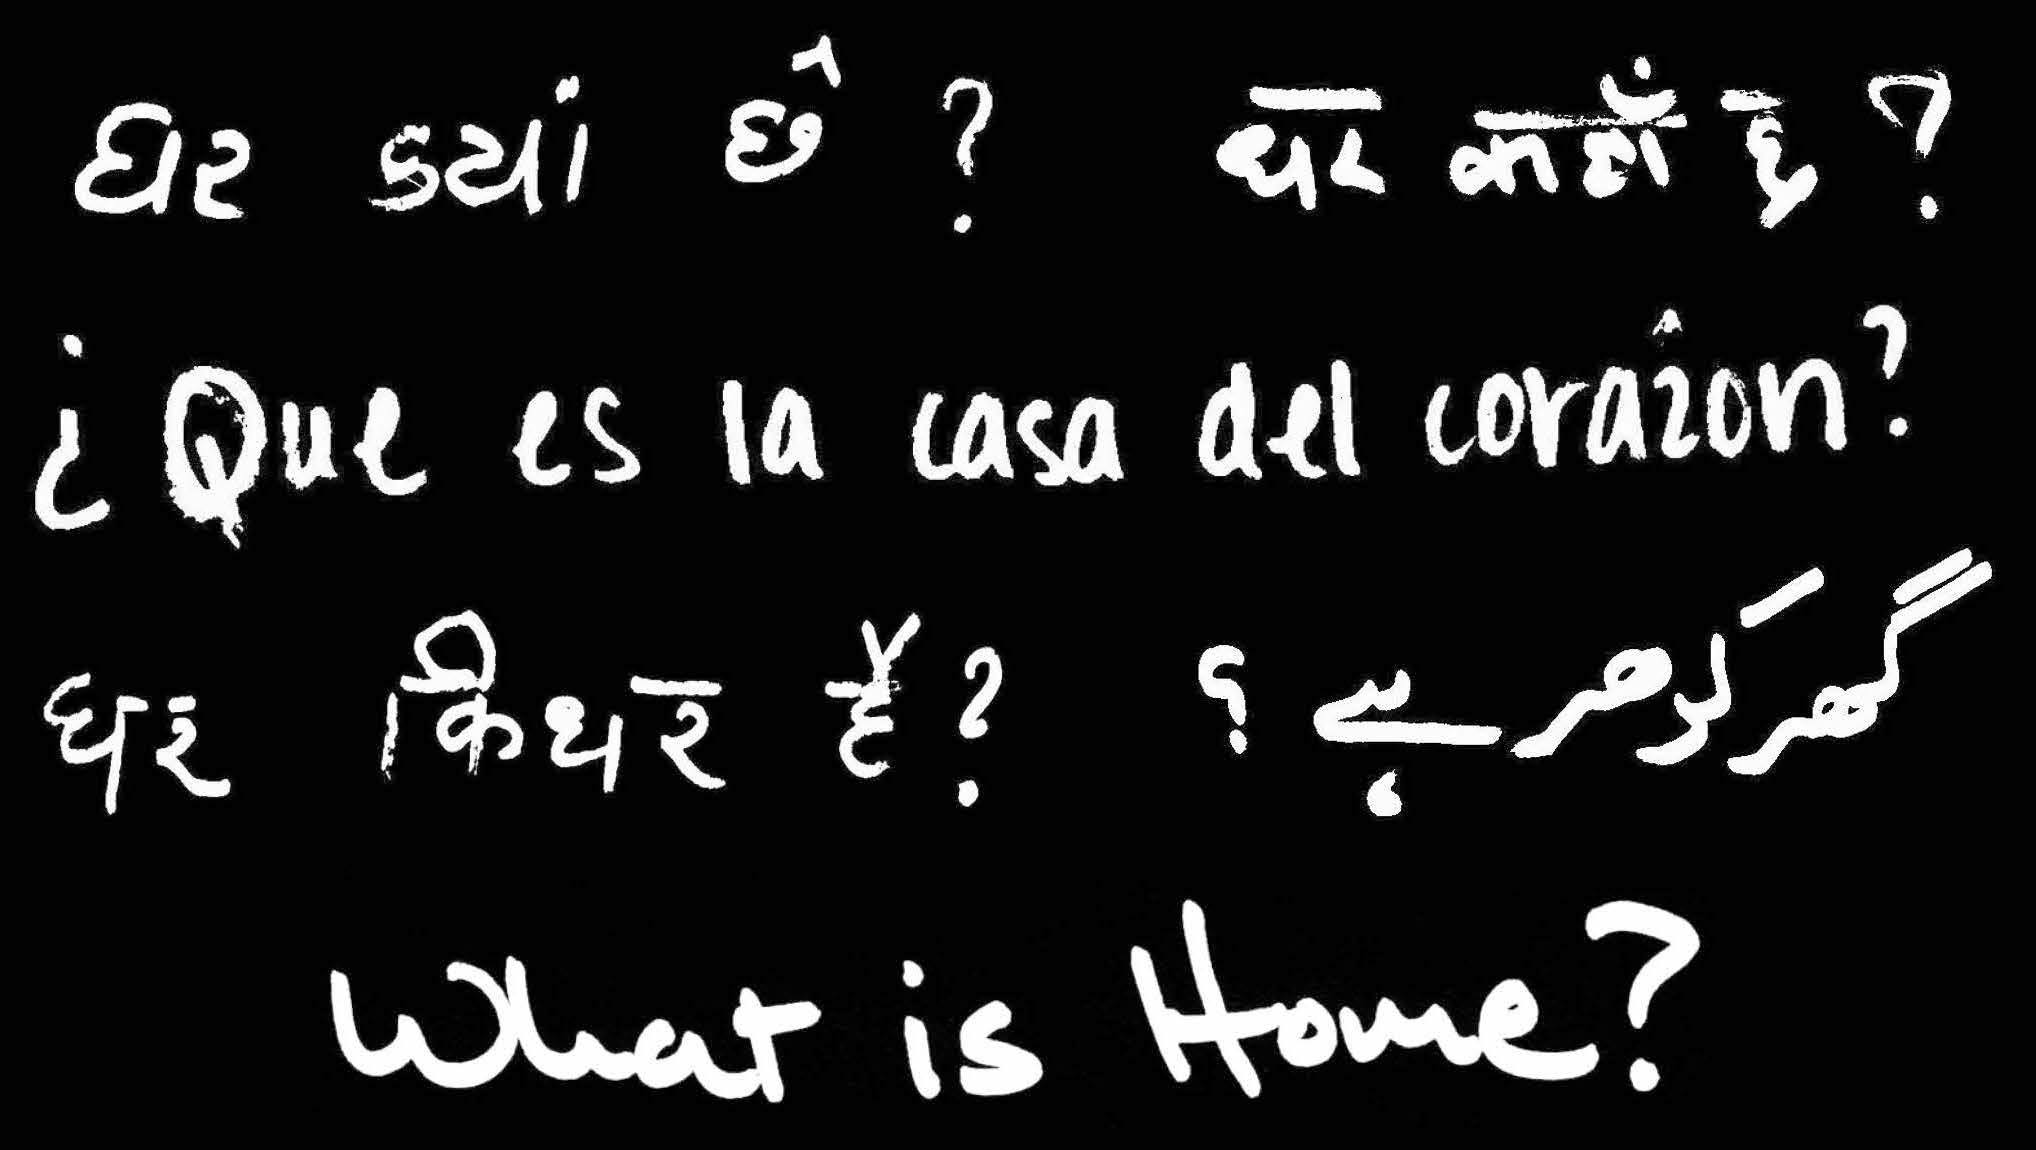 ઘર કયાં છે ? घर कहाँ है ?
¿Que es la casa del corazon?
घर किधर है? گھر کدھر ہے ؟
What is Home?